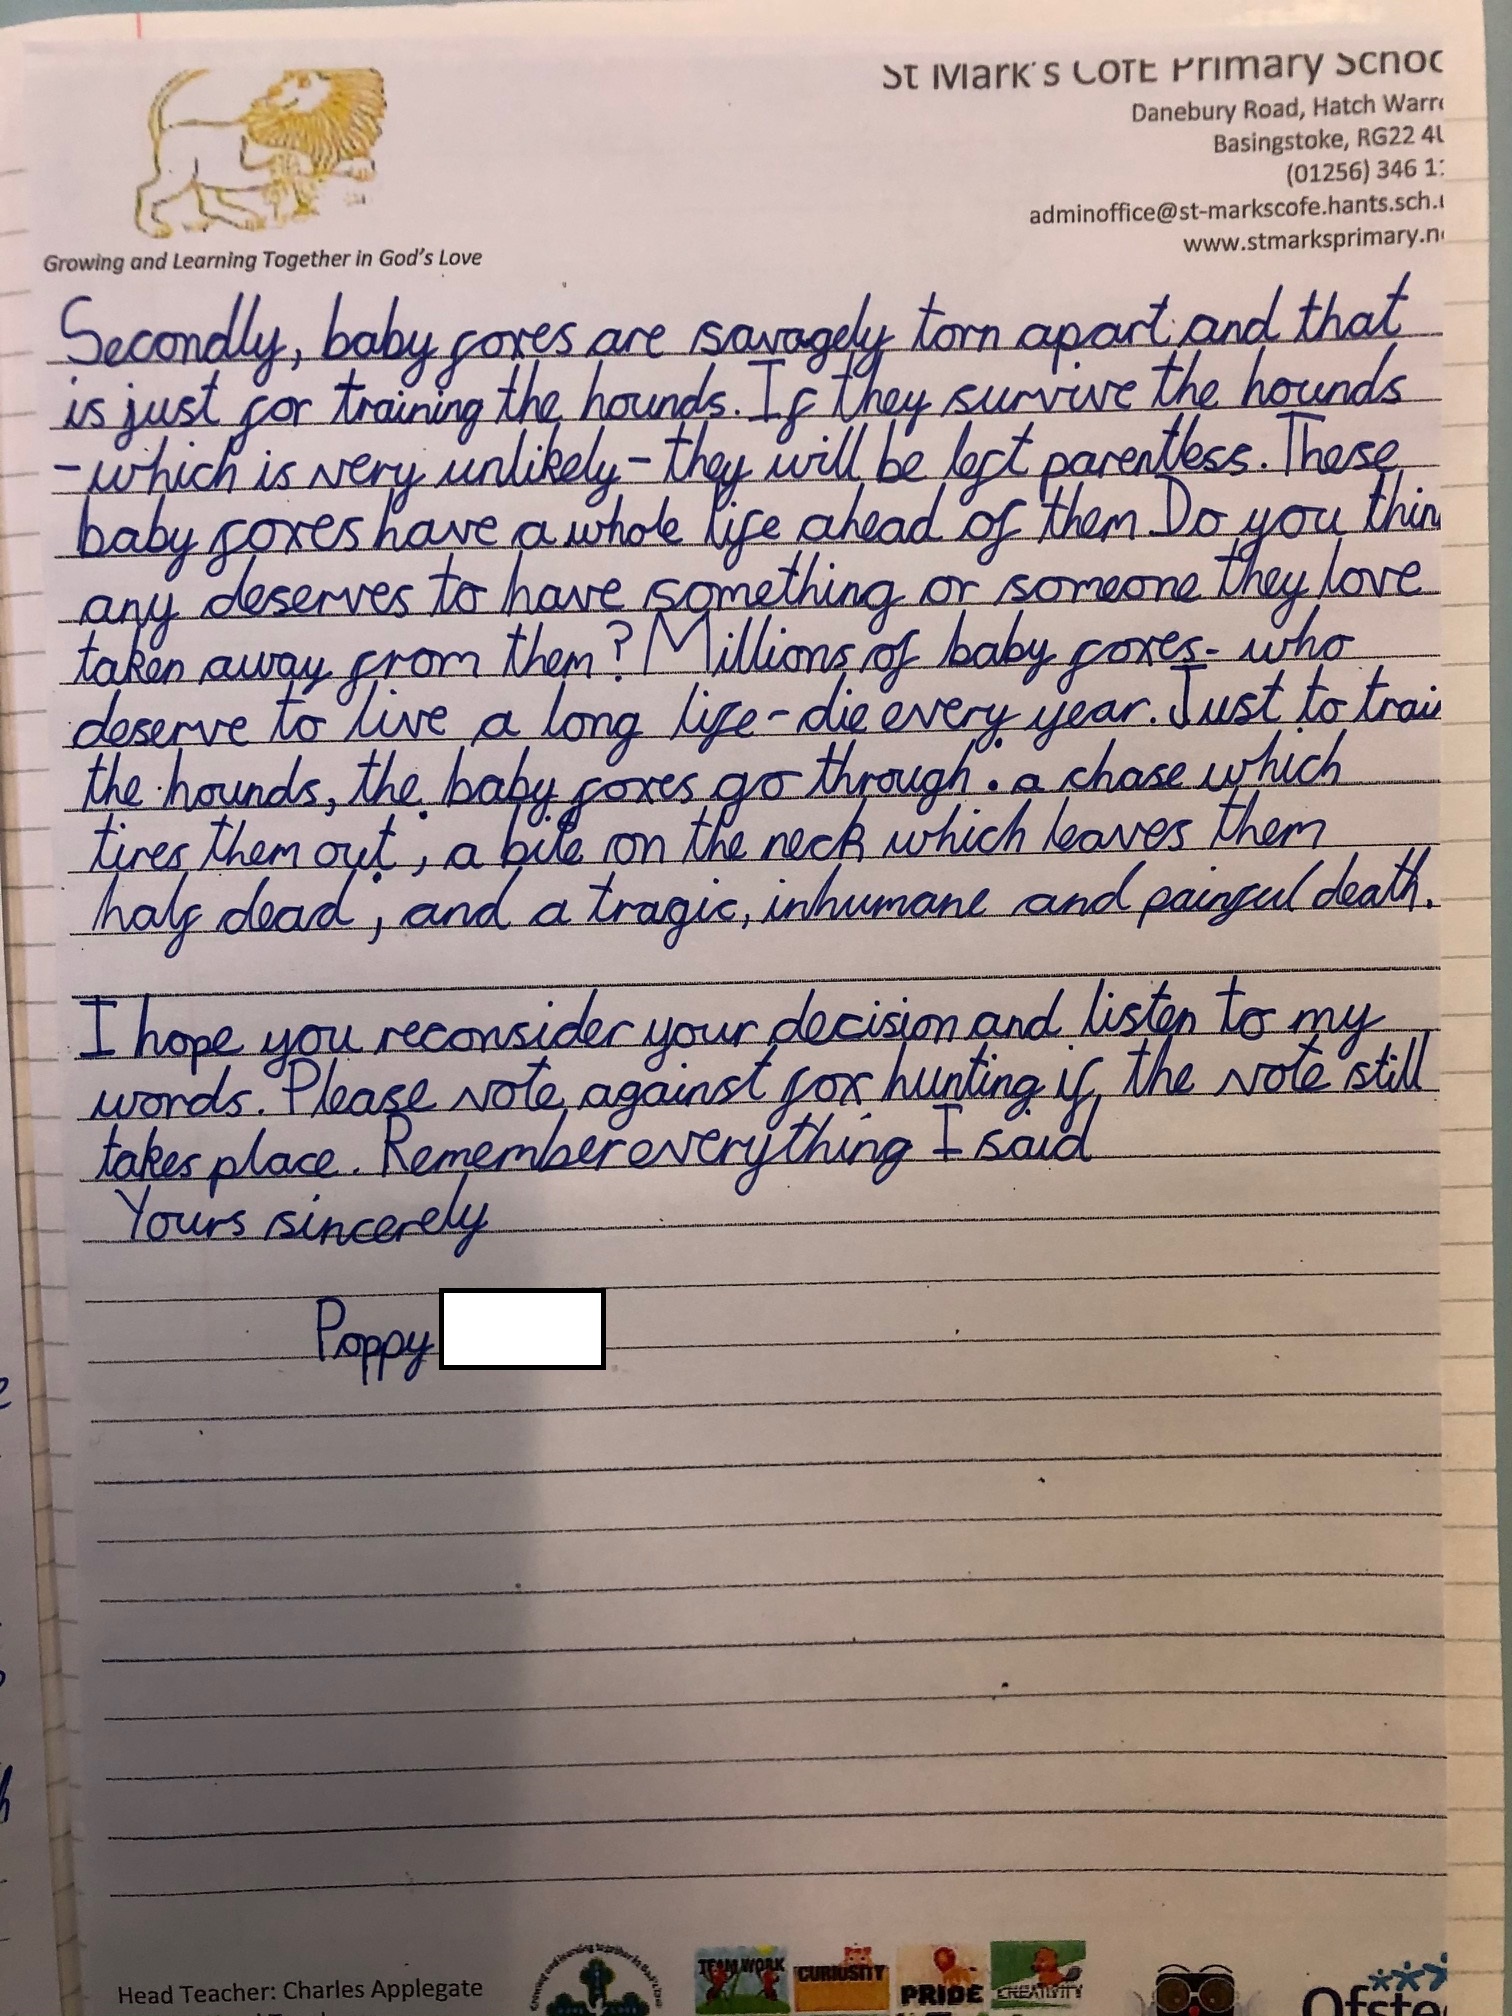 St Mark's CofE Primary Schoo
Danebury Road, Hatch Warre
Basingstoke, RG22 4
(01256) 346 1
adminoffice@st-markscofe.hants.sch.
www.stmarksprimary.n
Growing and Learning Together in God's Love
Secondly, baby foxes are savagely torn apart and that
is just for training the hounds. If they survive the hounds
- which is very unlikely - they will be left parentless. These
baby foxes have a whole life ahead of them Do you thin
any deserves to have something or someone they love
taken away from them? Millions of baby foxes - who
deserve to live a long life - die every year. Just to trai
the hounds, the baby foxes go through: a chase which
tires them out; a bite on the neck which leaves them
half dead; and a tragic, inhumane and painful death.
I hope you reconsider your decision and listen to my
words. Please vote against fox hunting if the vote still
takes place. Remember everything I said
Yours sincerely
Poppy
Head Teacher: Charles Applegate
TEAMWORK
CURIOSITY
PRIDE
CREATIVITY
Ofste